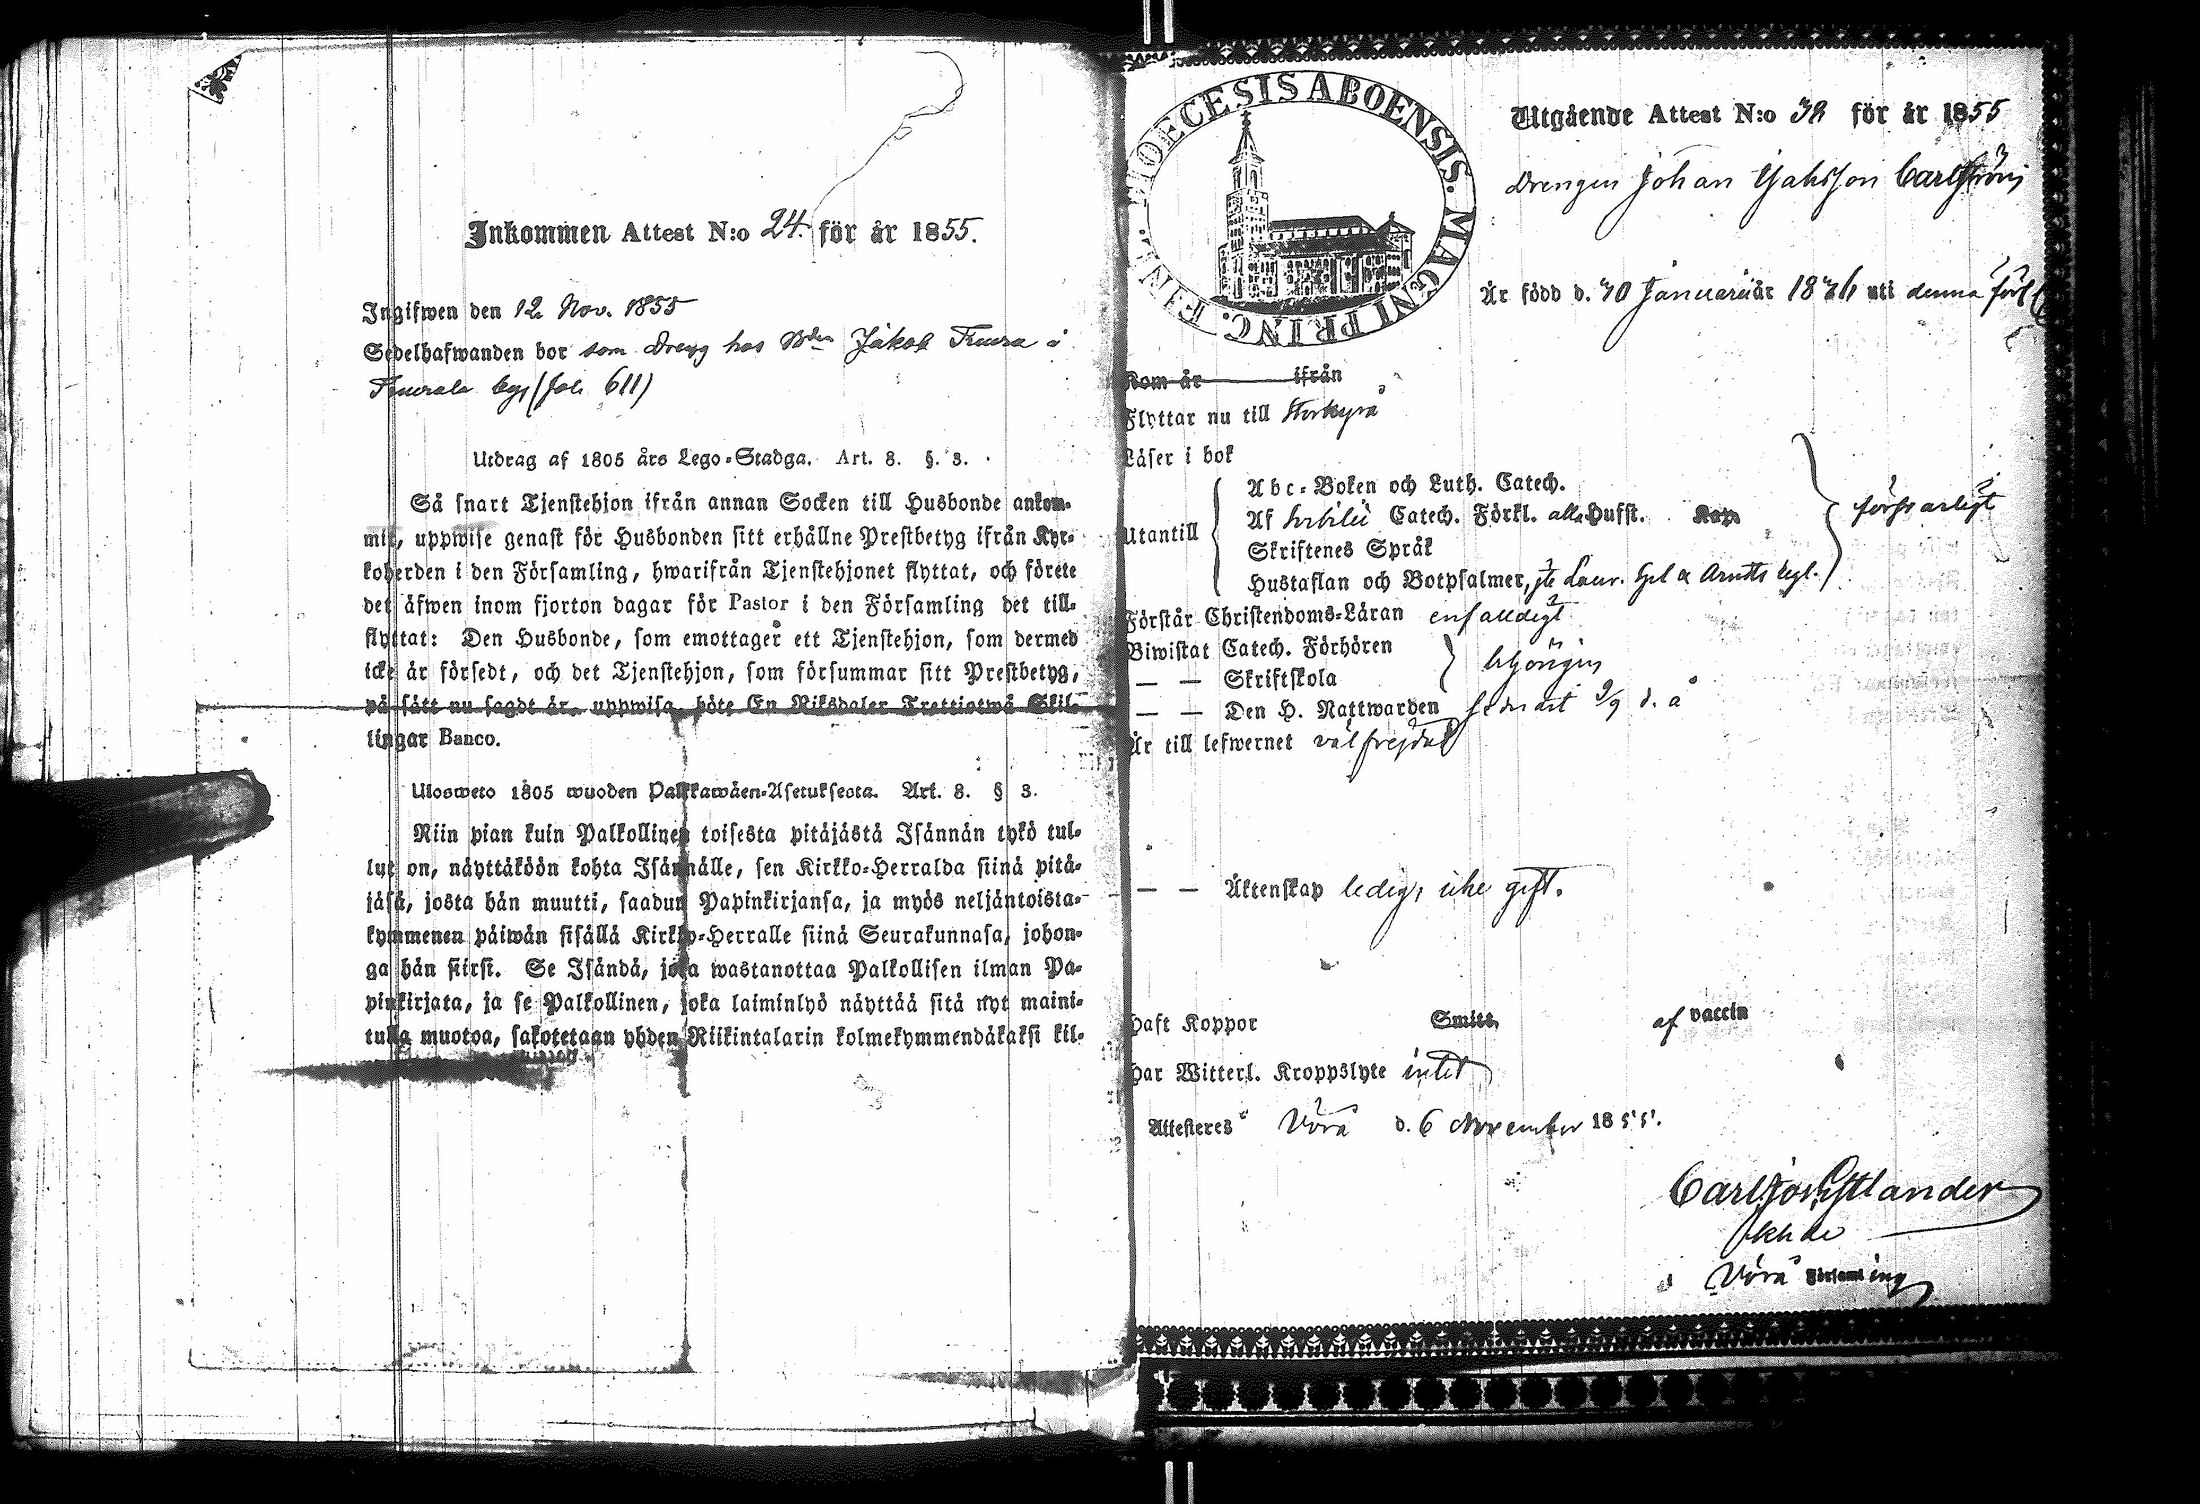 Inkommen Attest N:o 24. för år 1855.
Ingifwen den 12 Nov. 1855
Sedelhafwanden bor som dreng hos Jakob i
by (fol. 611)
Utdrag af 1805 års Lego-Stadga. Art. 8. §. 3.
Så snart Tjenstehjon ifrån annan Socken till Husbonde ankom-
mit, uppwise genast för Husbonden sitt erhållne Prestbetyg ifrån Kyr-
koherden i den Församling, hwarifrån Tjenstehjonet flyttat, och förete
det äfwen inom fjorton dagar för Pastor i den Församling det till-
flyttat: Den Husbonde, som emottager ett Tjenstehjon, som dermed
icke är försedt, och det Tjenstehjon, som försummar sitt Prestbetyg,
på sätt nu sagdt är, uppwisa, böte En Riksdaler Trettiotwå Skil-
lingar Banco.
Ulosweto 1805 wuoden Palkkawäen-Asetuksesta. Art. 8. § 3.
Niin pian kuin Palkollinen toisesta pitäjästä Isännän tykö tul-
lut on, näyttäköön kohta Isännälle, sen Kirkko-Herralda siinä pitä-
jäsä, josta hän muutti, saadun Papinkirjansa, ja myös neljäntoista-
kymmenen päiwän sisällä Kirkko-Herralle siinä Seurakunnasa, johon-
ga hän siirsi. Se Isändä, joka wastanottaa Palkollisen ilman Pa-
pinkirjata, ja se Palkollinen, joka laiminlyö näyttää sitä nyt maini-
tulla muotoa, sakotetaan yhden Riikintalarin kolmekymmendäkaksi kil-
DIOECESIS ABOENSIS. MAGNI PRINC. FINL.
Utgående Attest N:o för år 1855
Drengen Johan Carlström
Är född d. 30 Januarii år uti denna förs
Kom år ifrån
Flyttar nu till Storkyro
Läser i bok
Abc-Boken och Luth. Catech.
Utantill
Af Catech. Förkl. alla Hufst. Kap.
Skriftenes Språk
Hustaflan och Botpsalmer, Gel.
försvarligt
Förstår Christendoms-Läran enfaldigt
Biwistat Catech. Förhören
— — Skriftskola
behörigen
— — Den H. Nattwarden senast 2/9 d. å
Är till lefwernet välfrejdad
— — Äktenskap ledig, icke gift.
Haft Koppor Smitt, af vaccin
Har Witterl. Kroppslyte intet
Attesteres Vörå d. 6 November 1855.
Carl
khde
i Vörå Församling